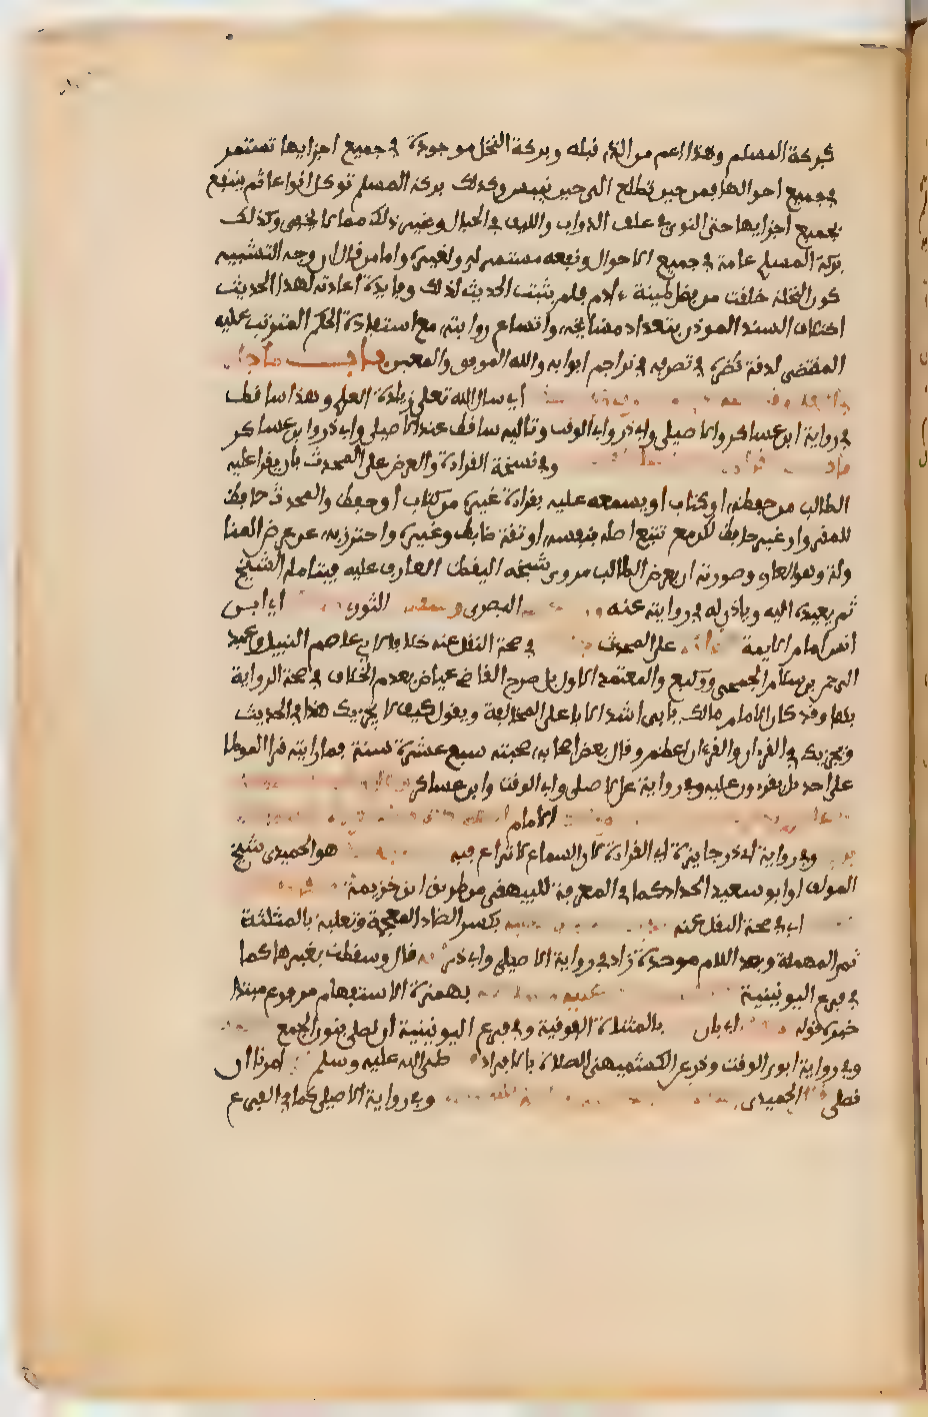 كبركة المسلم وهذا اعم من الذى قبله وبركة النخل موجودة فى جميع اجزايها تستمر
فى جميع احوالها فمن حين تطلع الى حين تيبس وكذلك بركة المسلم توكل انواعا ثم ينتفع
بجميع اجزايها حتى النوى فى علف الدواب والليف فى الحبال وغير ذلك مما لا يخفى وكذلك
بركة المسلم عامة فى جميع الاحوال ونفعه مستمر له ولغيره واما من قال ان وجه التشبيه
كون النخلة خلقت من فضل طينة ءادم فلم يثبت الحديث لذلك وفايدة اعادته لهذا الحديث
اختلاف السند الموذن بتعداد مشايخه واتساع روايته مع استفادة الحكم المترتب عليه
المقتضى لدقة نظره فى تصرفه فى تراجم ابوابه والله الموفق والمعين باب ما جاء
اى سال الله تعلى زيادة العلم وهذا ساقط
فى رواية ابن عساكر والاصيلى وابى ذر وابى الوقت وتاليه ساقط عند الاصيلى وابى ذر وابن عساكر
وفى نسخة القراءة والعرض على المحدث بان يقرا عليه
الطالب من حفظه او كتاب او يسمعه عليه بقراءة غيره من كتاب او حفظ والمحدث حافظ
للمقرو او غير حافظ لكن مع تتبع اصله بنفسه او ثقة ضابط وغيره واحترز به عن عرض المنا
ولة وهو العارى وصورته ان يعرض الطالب مروى شيخه اليقظ العارف عليه فيتامله الشيخ
ثم يعيده اليه وياذن له فى روايته عنه البصرى و الثورى اى ابن
انس امام الايمة على المحدث فى صحة النقل عنه خلافا لابى عاصم النبيل وعبد
الرحمن بن سلام الجمحى ووكيع والمعتمد الاول بل صرح القاضى عياض بعدم الخلاف فى صحة الرواية
بها وقد كان الامام مالك يابى اشد الابا على المخالف ويقول كيف لا يجزيك هذا فى الحديث
ويجزيك فى القرءان والقرءان اعظم وقال بعض اصحابه صحبته سبع عشرة سنة فما رايته قرا الموطا
على احد بل يقرءون عليه وفى رواية غير الاصيلى وابى الوقت وابن عساكر
الامام
وفى رواية ابى ذر جايزة اى القراءة لان السماع لا نزاع فيه هو الحميدى شيخ
المولف او ابو سعيد الحداد كما فى المعرفة للبيهقى من طريق ابن خزيمة
اى فى صحة النقل عنه بكسر الضاد المعجمة وثعلبة بالمثلثة
ثم المهملة وبعد اللام موحدة زاد فى رواية الاصيلى وابى ذر قال وسقطت لغيرهما كما
فى فرع اليونينية بهمزة الاستفهام مرفوع مبتدا
خبره قوله اى بان بالمثناة الفوقية وفى فرع اليونينية ان نصلى بنون الجمع
وفى رواية ابوى الوقت وذر عن الكشميهنى الصلاة بالافراد صلى الله عليه وسلم امرنا ان
نصلى قال الحميدى وفى رواية الاصيلى كما فى الفرع